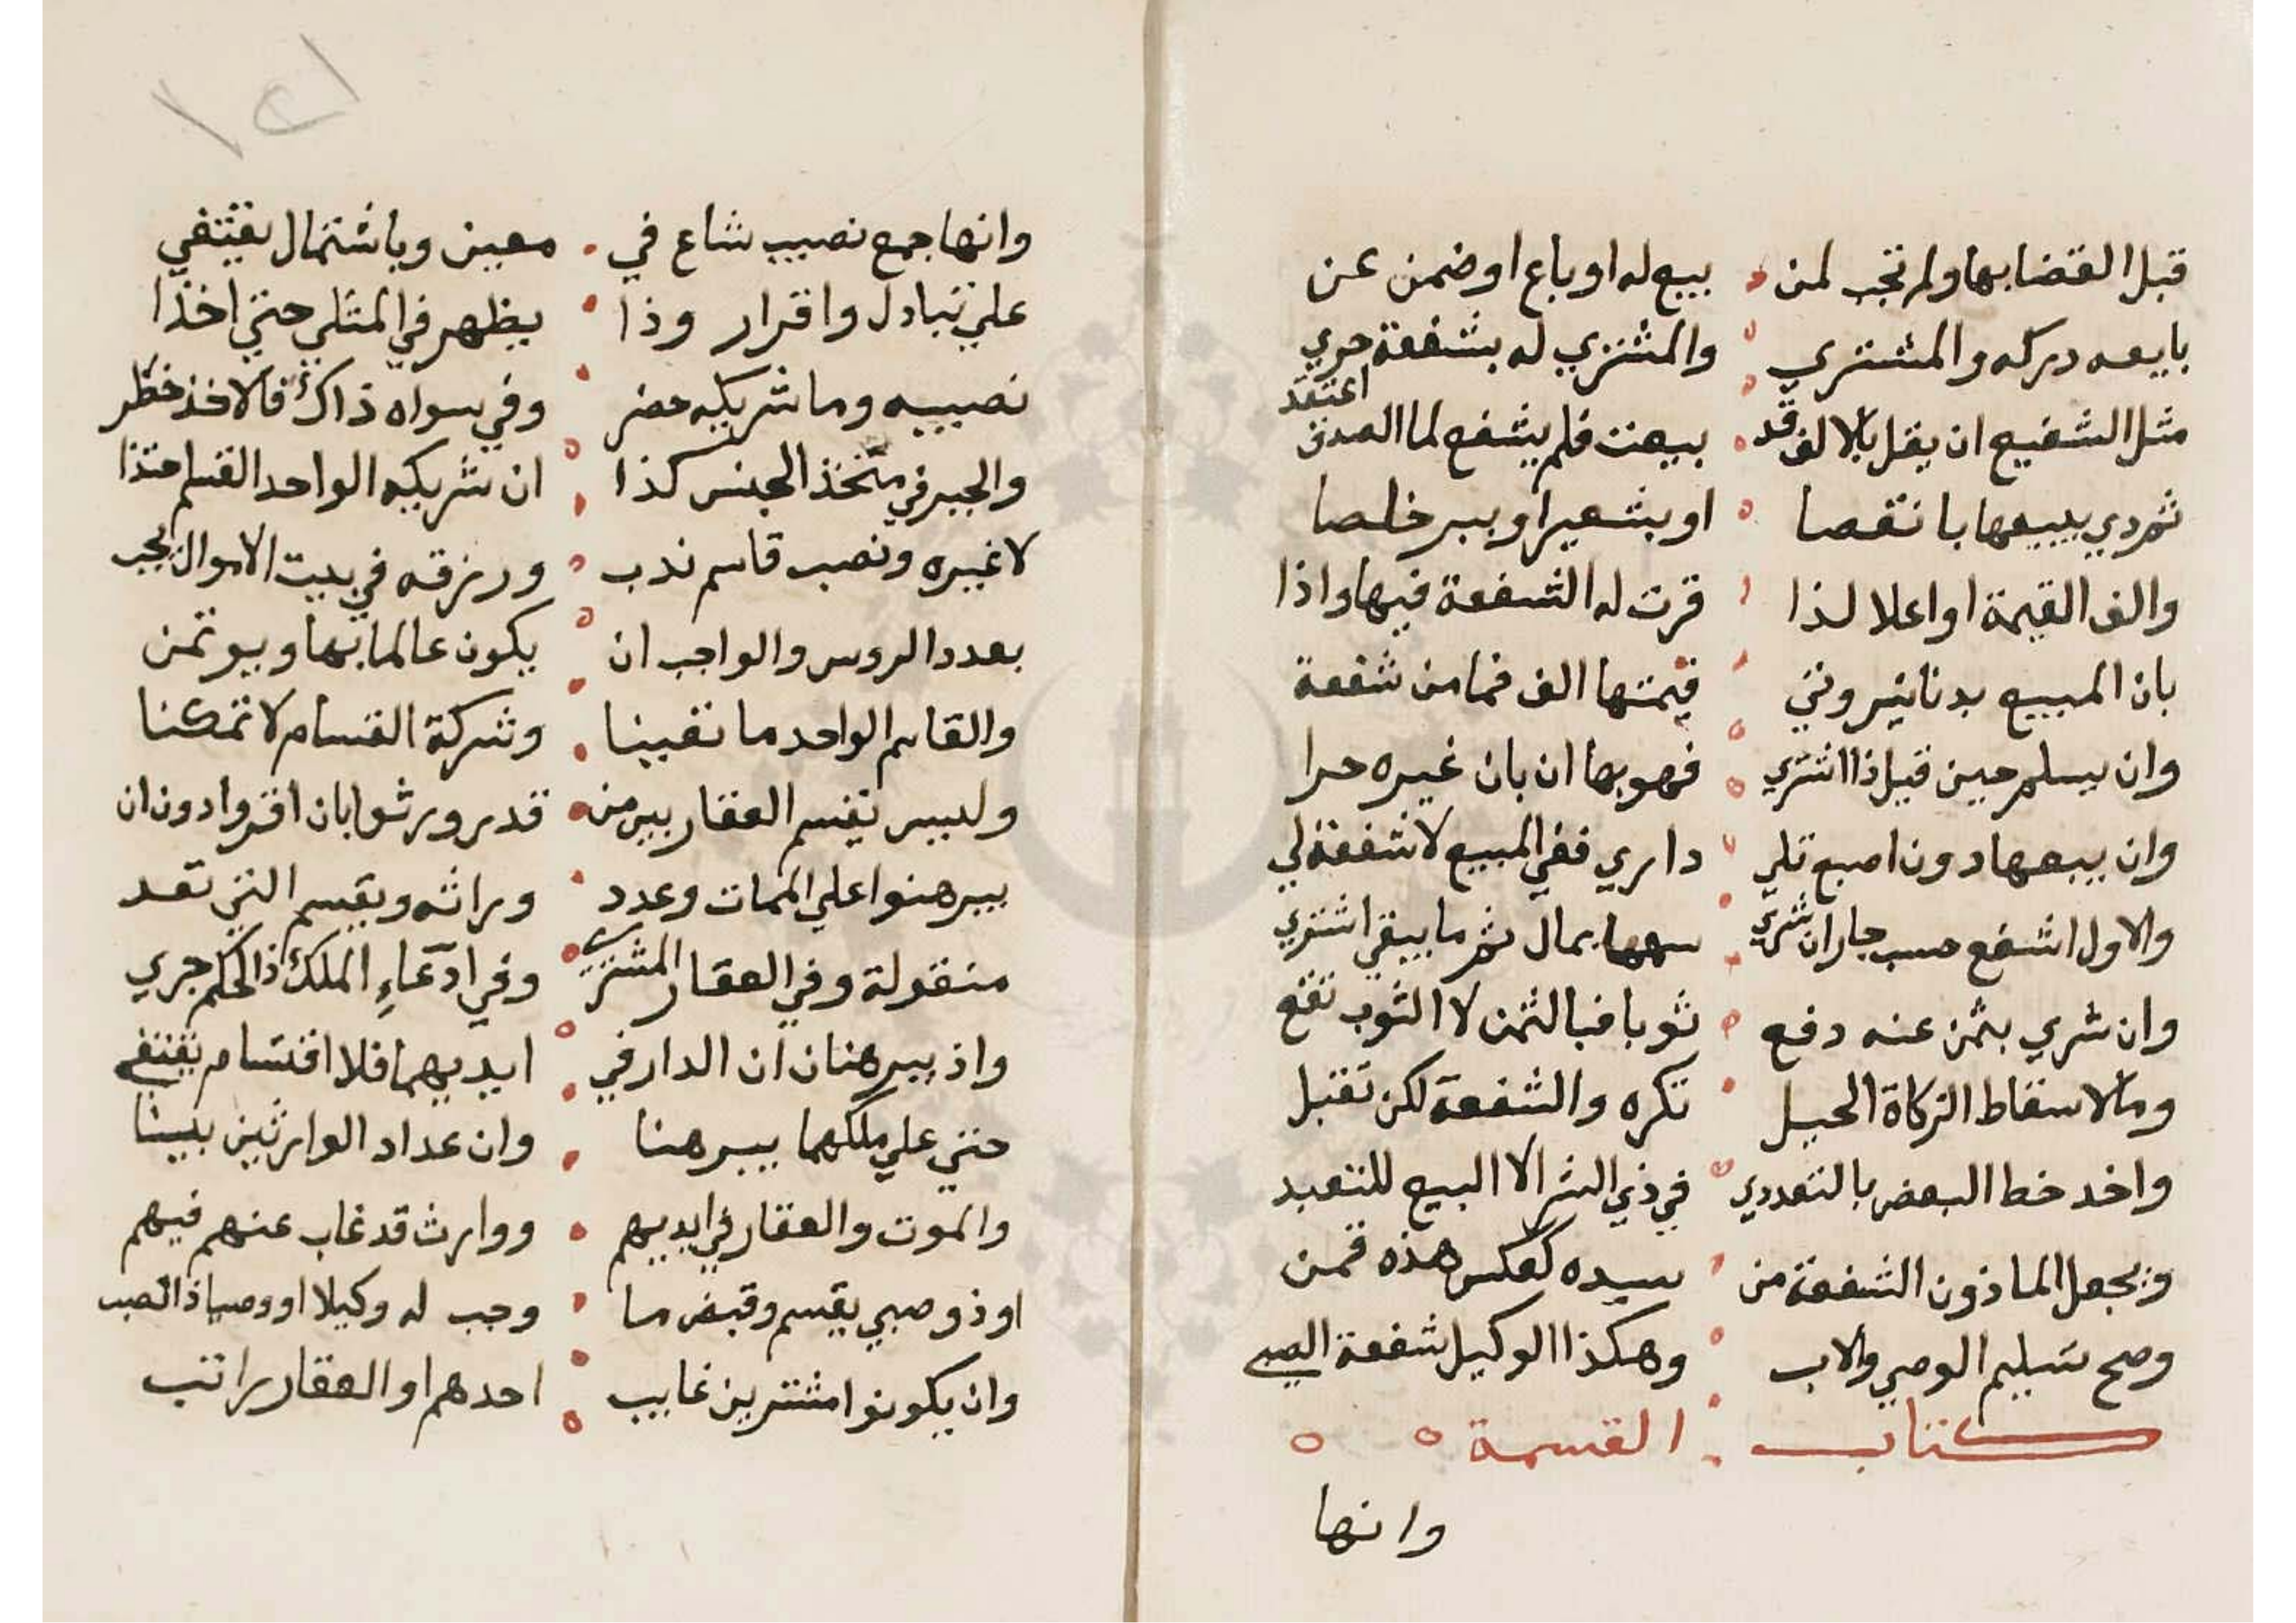 قبل القضا بها ولم تجب لمن بيع له او باع او ضمن عن
بايعه دركه والمشتري والمشتري له بشفعة حري
مثل الشفيع ان يقل بالالف قد بيعت فلم يشفع لما الصدق اعتقد
ثم دري بيعها بانقصا او بشعير او ببر خلصا
والف القيمة او اعلا لذا قرت له الشفعة فيها واذا
بان المبيع بدنانير وني قيمتها الف فما من شفعة
وان يسلم حين قيل ذا اشتري فهو بها ان بان غيره حرا
وان يبعها دون اصبع تلي داري ففي المبيع لا شفعة لي
والاول اشفع حسب جار ان شري سهما بمال ثم ما يبقي اشتري
وان شري بثمن عنه دفع ثوبا فبالثمن لا الثوب تقع
ومالاسقاط الزكاة الحيل تكره والشفعة لكن تقبل
واخد خط البعض بالتعددي في ذي الشرا لا البيع للتعبد
ويجعل الماذون الشفعة من سيده كعكس هذه قمن
وصح تسليم الوصي والاب وهكذا الوكيل شفعة الصبي
كتاب القسمة
وانها
وانها جمع نصيب شاع في معين وباشتمال يقتفي
علي تبادل واقرار وذا يظهر في المثلي حتي اخذا
نصيبه وما شريكه حضر وفي سواه ذاك فالاخذ خطر
والجبر في متخذ الجنس كذا ان شريكه الواحد القسم حتذا
لا غيره ونصب قاسم ندب ورزقه في بيت الاموال يجب
بعدد الروس والواجب ان يكون عالما بها ويوتمن
والقاسم الواحد ما تعينا وشركة القسام لا تمكنا
وليس يقسم العقار بين من قد ورثوا بان اقروا دون ان
يبرهنوا علي الممات وعدد وراثه ويقسم التي تعد
منقولة وفي العقار المشتري وفي ادعاءِ الملك ذا الحكم جري
واذ يبرهنان ان الدار في ايديهما فلا اقتسام يقتفي
حتي علي ملكهما يبرهنا وان عداد الوارثين بينا
والموت والعقار في ايديهم ووارث قد غاب عنهم فيهم
او ذو صبي يقسم وقبض ما وجب له وكيلا او وصيا ذا نصب
وان يكونوا مشترين غايب احدهم او العقار راتب